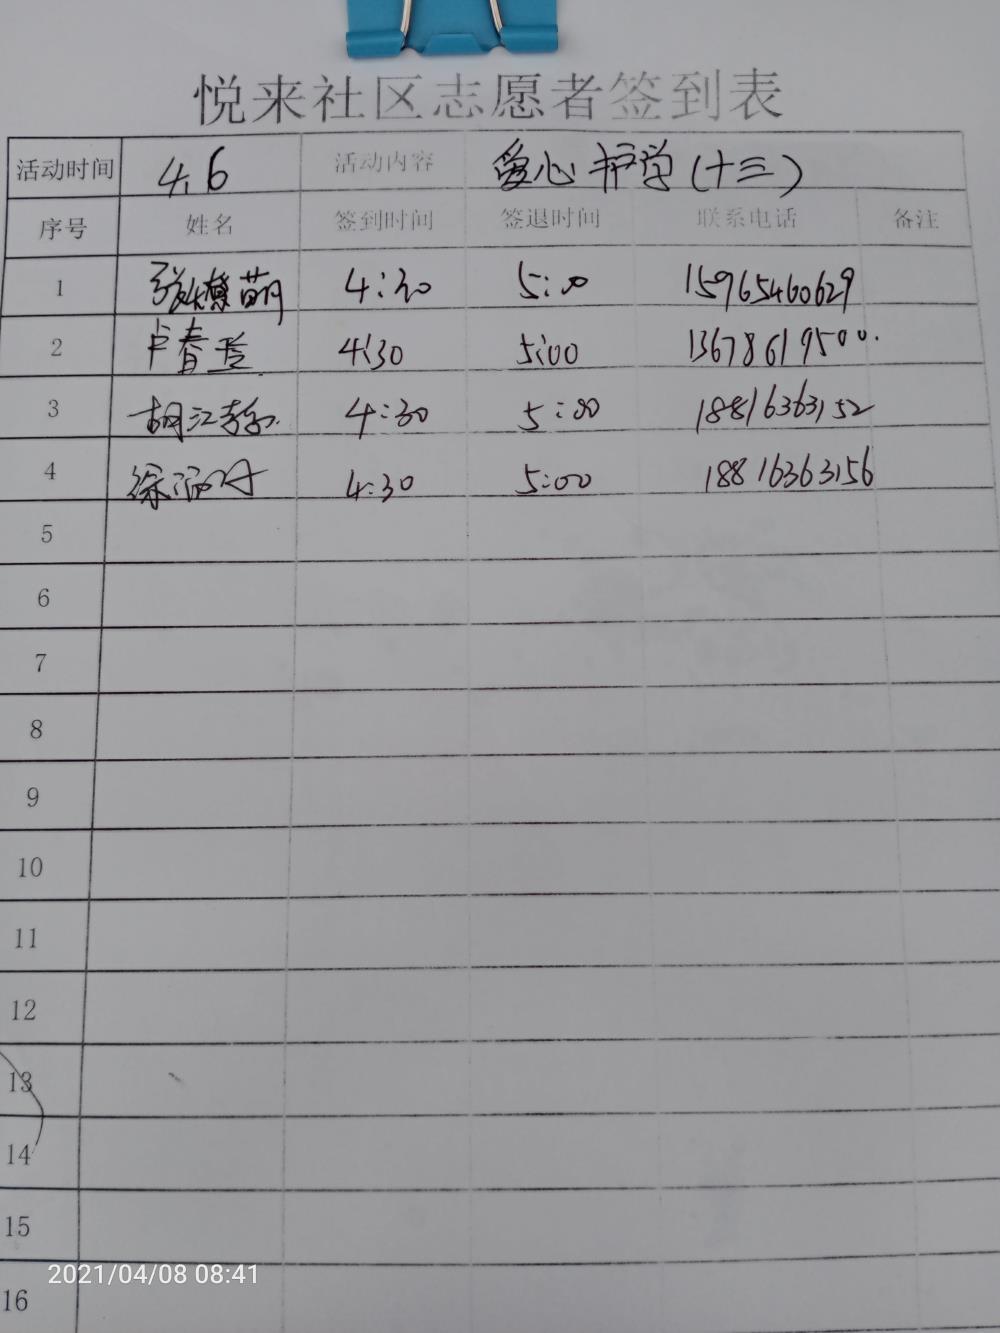 悦来社区志愿者签到表
活动时间 4.6 活动内容 爱心护学(十三)
序号 姓名 签到时间 签退时间 联系电话 备注
1 张 苗 4:30 5:00 15965460629
2 卢春 4:30 5:00 13678619500.
3 胡江 4:30 5:00 18816363152
4 徐 4:30 5:00 18816363156
5
6
7
8
9
10
11
12
13
14
15
16
2021/04/08 08:41